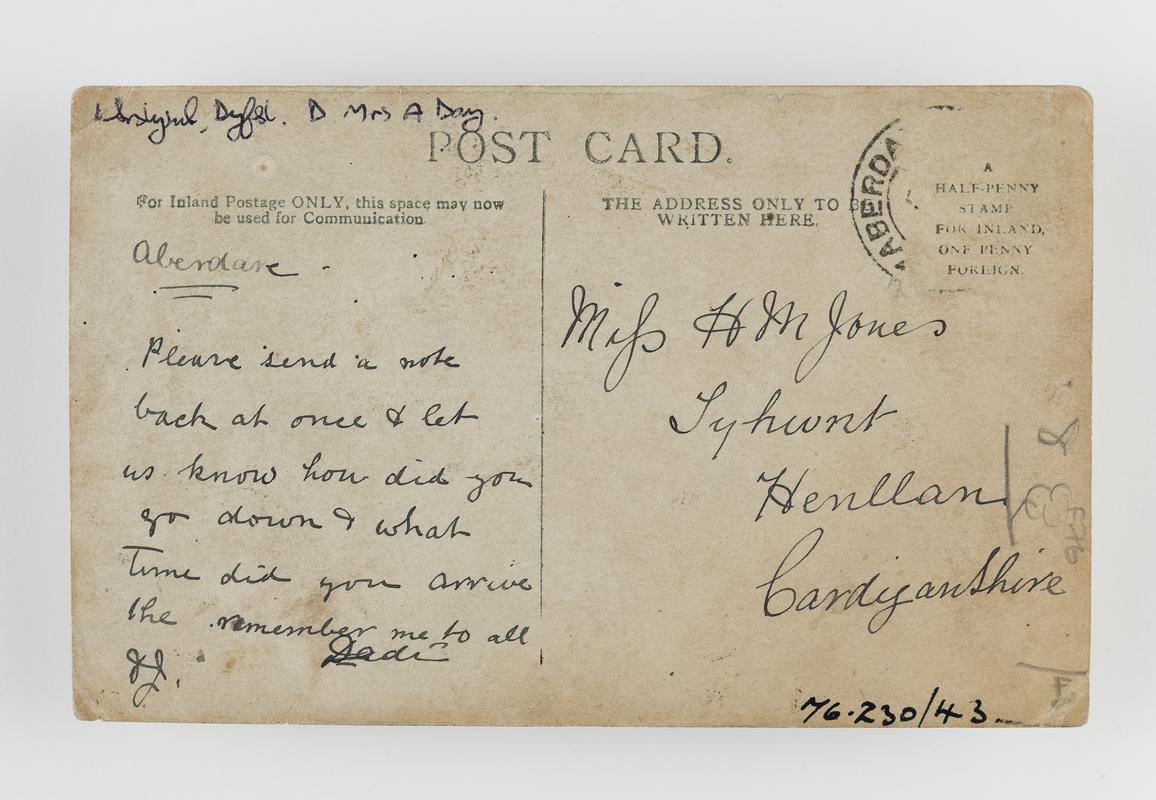 Dyfed. D Mrs A Day.
POST CARD.
For Inland Postage ONLY, this space may now
be used for Communication
Aberdare
Please send a note
back at once & let
us know how did you
go down & what
Time did you arrive
the remember me to all
Dadi
THE ADDRESS ONLY TO BE
WRITTEN HERE.
ABERDA
A
HALF-PENNY
STAMP
FOR INLAND,
ONE PENNY
FOREIGN.
Miss H M Jones
Tyhwnt
Henllan
Cardiganshire
76.230/43